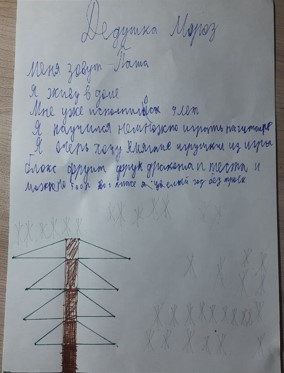 Дедушка Мороз
Меня зовут Паша
Я живу в доме
Мне уже исполнилось 9 лет
Я научился немножко играть на гитаре
Я очень хочу мягкие игрушки из игры
блокс фрукт фрукт дракона и теста и
можно